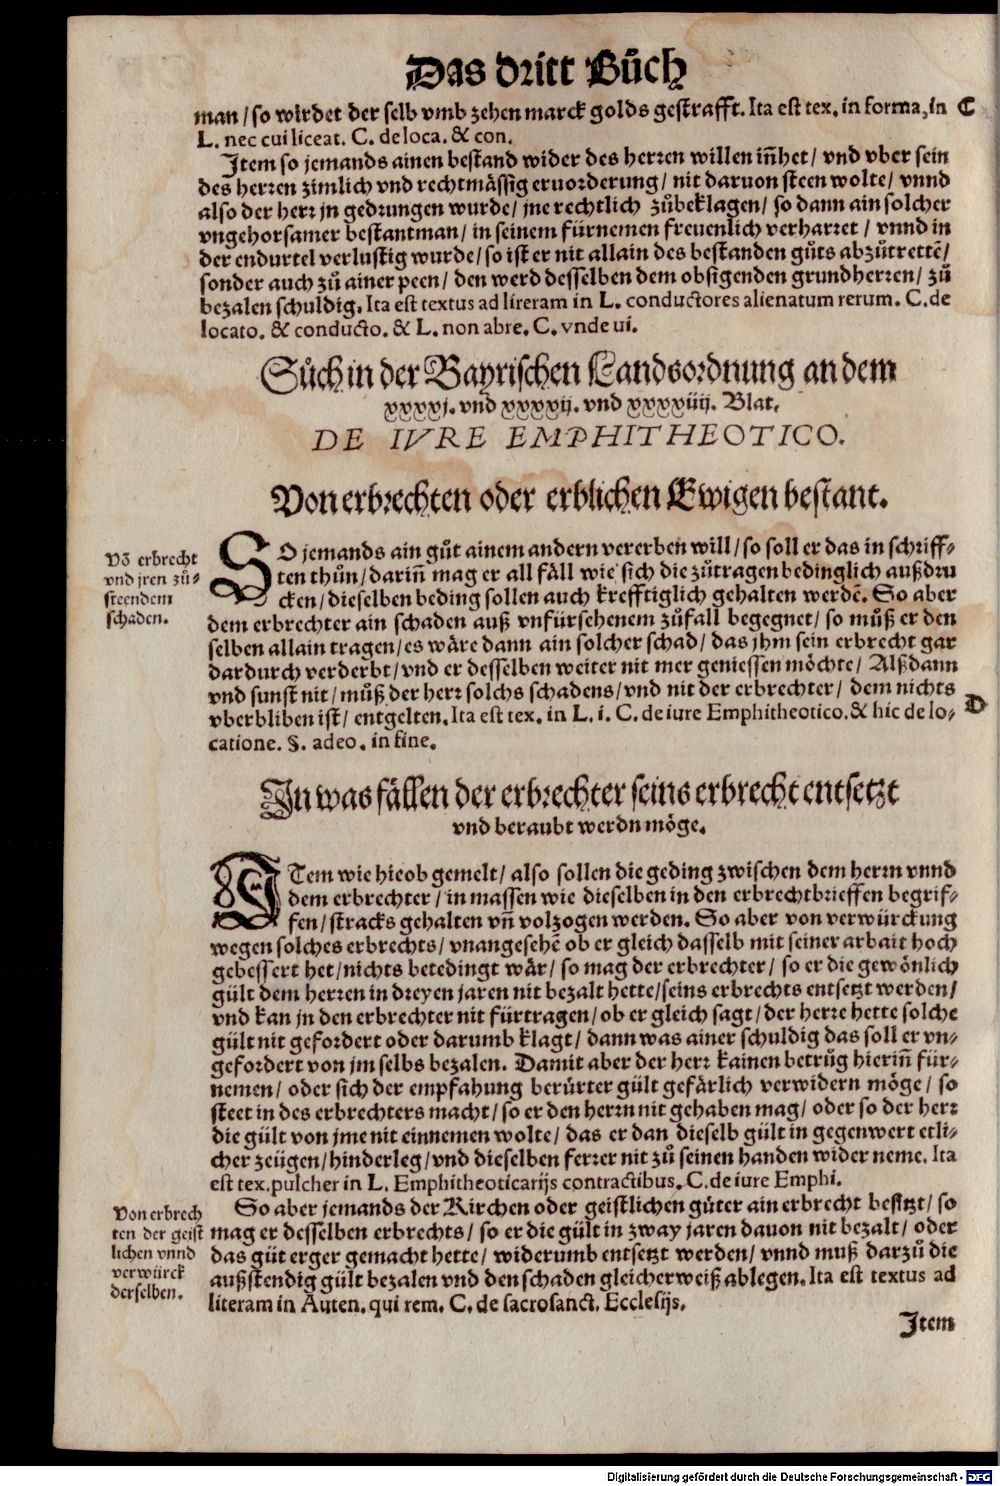 Das dritt Bůch
man / so wirdet der selb vmb zehen marck golds gestrafft. Ita est tex. in forma, in C
L. nec cui liceat. C. de loca. & con.
Item so jemands ainen bestand wider des herren willen iñhet / vnd vber sein
des herren zimlich vnd rechtmässig eruorderung / nit daruon steen wolte / vnnd
also der herr jn gedrungen wurde / jne rechtlich zůbeklagen / so dann ain solcher
vngehorsamer bestantman / in seinem fürnemen freuenlich verharret / vnnd in
der endurtel verlustig wurde / so ist er nit allain des bestanden gůts abzůtrettē /
sonder auch zů ainer peen / den werd desselben dem obsigenden grundherren / zů
bezalen schuldig. Ita est textus ad literam in L. conductores alienatum rerum. C. de
locato. & conducto. & L. non abre. C. vnde ui.
Sůch in der Bayrischen Landsordnung an dem
xxxxj. vnd xxxxij. vnd xxxxiiij. Blat.
DE IVRE EMPHITHEOTICO.
Von erbrechten oder erblichen Ewigen bestant.
Võ erbrecht
vnd jren zů-
steendem
schaden.
SO jemands ain gůt ainem andern vererben will / so soll er das in schriff-
ten thůn / dariñ mag er all fäll wie sich die zůtragen bedinglich außdru
cken / dieselben beding sollen auch krefftiglich gehalten werdē. So aber
dem erbrechter ain schaden auß vnfürsehenem zůfall begegnet / so můß er den
selben allain tragen / es wäre dann ain solcher schad / das jhm sein erbrecht gar
dardurch verderbt / vnd er desselben weiter nit mer geniessen möchte / Alßdann
vnd sunst nit / můß der herr solchs schadens / vnd nit der erbrechter / dem nichts
vberbliben ist / entgelten. Ita est tex. in L. i. C. de iure Emphitheotico. & hic de lo- D
catione. §. adeo. in fine.
In was fällen der erbrechter seins erbrecht entsetzt
vnd beraubt werdn möge.
ITem wie hieob gemelt / also sollen die geding zwischen dem herrn vnnd
dem erbrechter / in massen wie dieselben in den erbrechtbrieffen begrif-
fen / stracks gehalten vñ volzogen werden. So aber von verwürckung
wegen solches erbrechts / vnangesehē ob er gleich dasselb mit seiner arbait hoch
gebessert het / nichts betedingt wär / so mag der erbrechter / so er die gewönlich
gült dem herren in dreyen jaren nit bezalt hette / seins erbrechts entsetzt werden /
vnd kan jn den erbrechter nit fürtragen / ob er gleich sagt / der herre hette solche
gült nit gefordert oder darumb klagt / dann was ainer schuldig das soll er vn-
gefordert von jm selbs bezalen. Damit aber der herr kainen betrůg hieriñ für-
nemen / oder sich der empfahung berürter gült gefärlich verwidern möge / so
steet in des erbrechters macht / so er den herrn nit gehaben mag / oder so der herr
die gült von jme nit einnemen wolte / das er dan dieselb gült in gegenwert etli-
cher zeügen / hinderleg / vnd dieselben ferrer nit zů seinen handen wider neme. Ita
est tex. pulcher in L. Emphitheoticarijs contractibus. C. de iure Emphi.
Von erbrech
ten der geist
lichen vnnd
verwürck
derselben.
So aber jemands der Kirchen oder geistlichen güter ain erbrecht besitzt / so
mag er desselben erbrechts / so er die gült in zway jaren dauon nit bezalt / oder
das gůt erger gemacht hette / widerumb entsetzt werden / vnnd muß darzů die
außstendig gült bezalen vnd den schaden gleicherweiß ablegen. Ita est textus ad
literam in Auten. qui rem. C. de sacrosanct. Ecclesijs.
Item
Digitalisierung gefördert durch die Deutsche Forschungsgemeinschaft - DFG